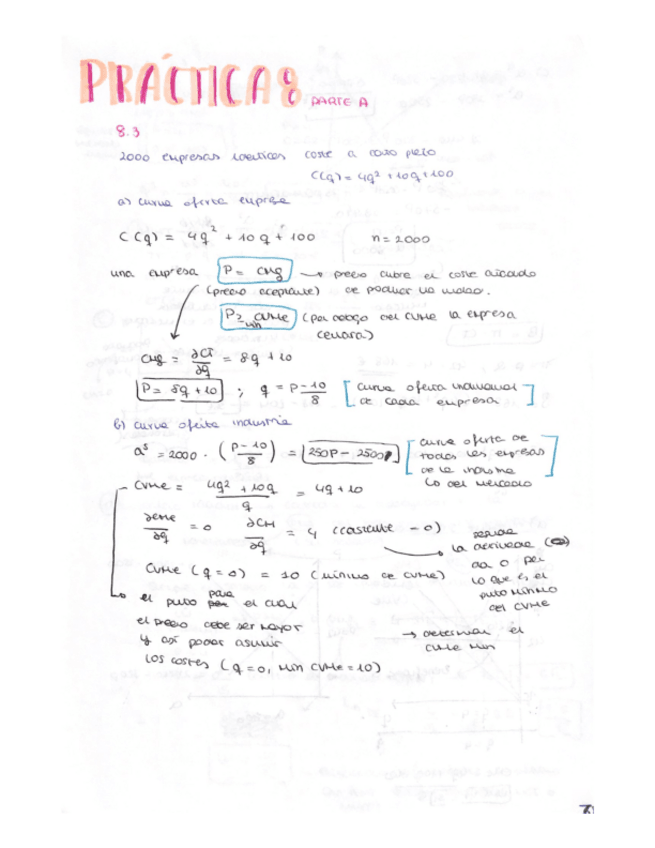 PRÁCTICA 8 PARTE A
8.3
2000 empresas idénticas coste a corto plazo
C(q) = 4q² + 10q + 100
a) curva oferta empresa
C(q) = 4q² + 10q + 100 n = 2000
una empresa P = CMg → precio cubre el coste
(precio aceptante) de producir una unidad.
P ≥ CVMe (por debajo del CVMe la empresa
min cerrará)
CMg = ∂CT/∂q = 8q + 10
P = 8q + 10 ; q = P - 10/8 [curva oferta individual
de cada empresa]
b) curva oferta industria
Qˢ = 2000 · (P - 10/8) = 250P - 2500 [curva oferta de
todas las empresas
de la industria
lo del mercado]
CVMe = 4q² + 10q/q = 4q + 10
∂CMe/∂q = 0 ∂CM/∂q = 4 (constante - 0)
la derivada
CVMe (q = 0) = 10 (mínimo de CVMe)
da 0 por
lo que es el
punto mínimo
del CVMe
el punto para el cual
el precio debe ser mayor
y así poder asumir
los costes (q = 0, min CVMe = 10)
→ determinar el
CVMe min